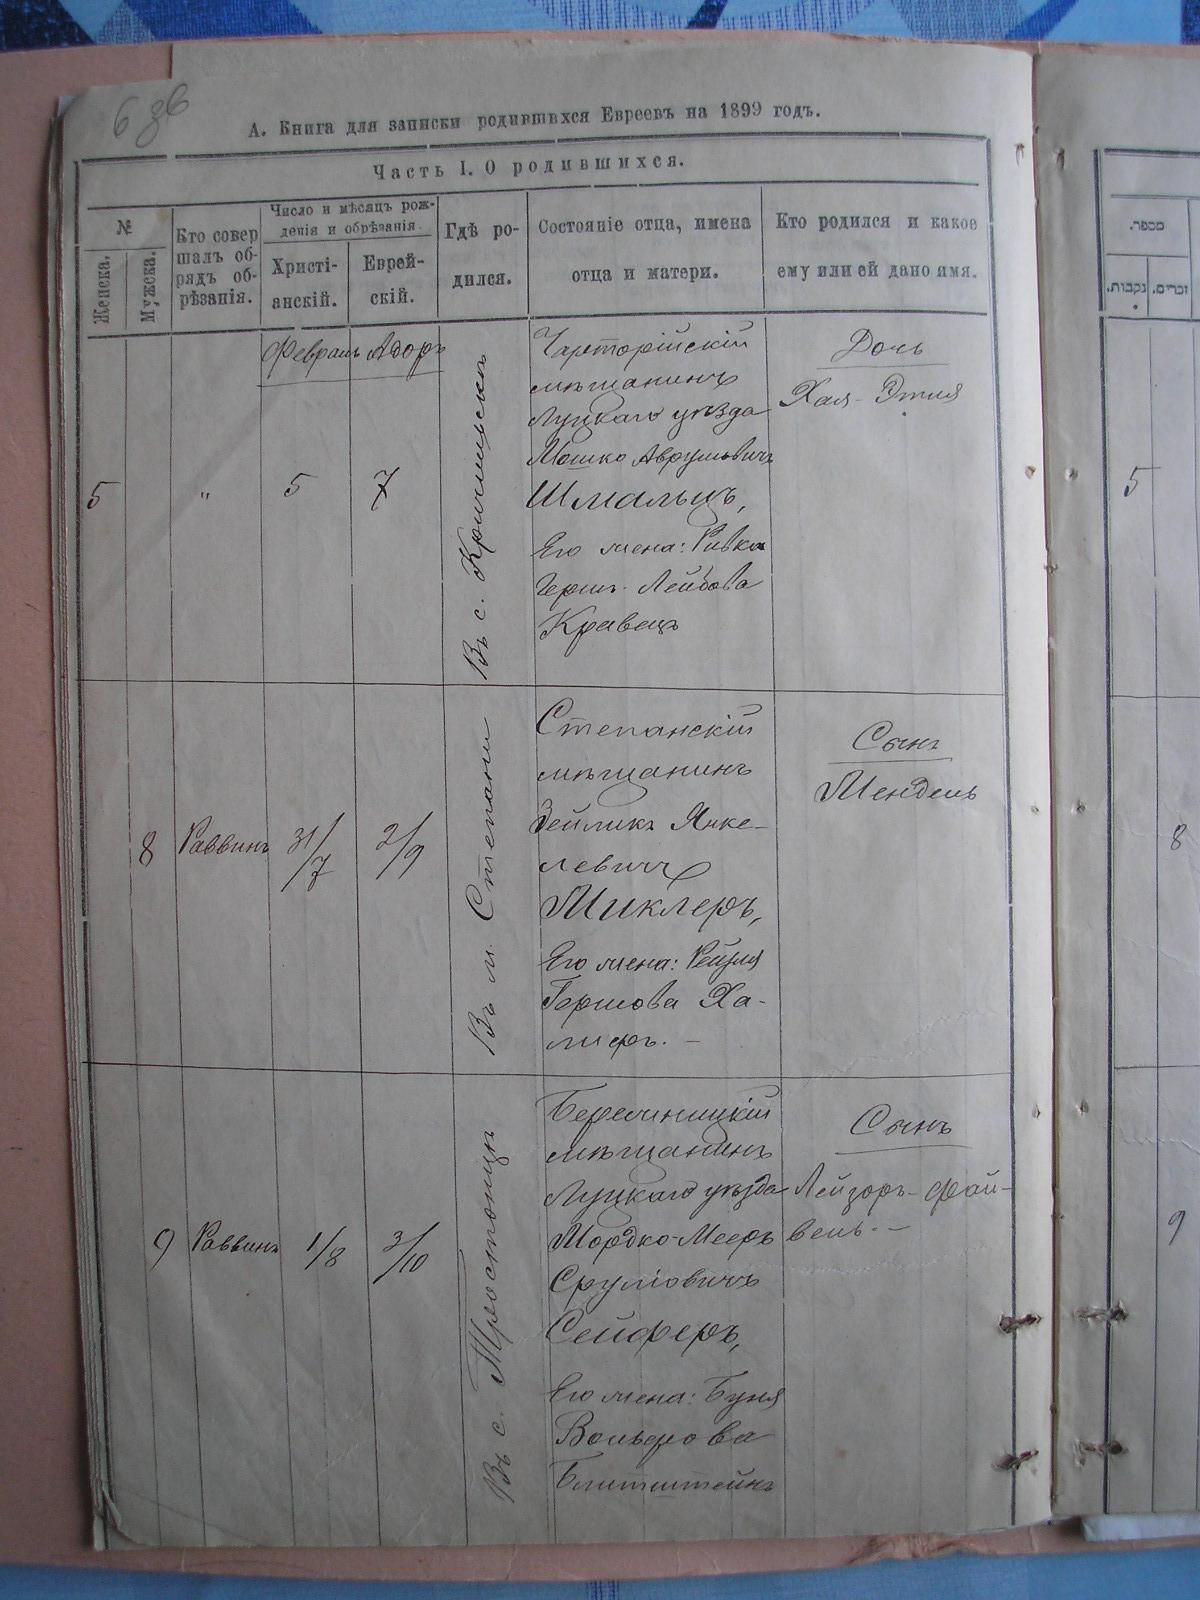 6 зв
А. Книга для записки родившихся Евреевъ на 1899 годъ.
Часть I. О родившихся.
№
Женска.
Мужска.
Кто совер
шалъ об-
рядъ об-
рѣзанія.
Число и мѣсяцъ рож-
денія и обрѣзанія.
Христі-
анскій.
Еврей-
скій.
Гдѣ ро-
дился.
Состояніе отца, имена
отца и матери.
Кто родился и какое
ему или ей дано имя.
Февраль
Адоръ
5
"
5
7
Въ с. Кричильскъ
Чарторійскій
мѣщанинъ
Луцкаго уѣзда
Мошко Аврумовичъ
Шмальцъ,
Его жена: Ривка
Герш-Лейбова
Кравецъ
Дочь
Хая-Этля
8
Раввинъ
31/7
2/9
Въ м. Степани
Степанскій
мѣщанинъ
Зейликъ Янке-
левичъ
Миклеръ,
Его жена: Рейзля
Гершова Ха-
лифъ. -
Сынъ
Мендель
9
Раввинъ
1/8
3/10
Въ с. Тростянцѣ
Бережницкій
мѣщанинъ
Луцкаго уѣзда
Мордко-Мееръ
Сруліовичъ
Сейферъ,
Его жена: Буня
Вольфова
Блитштейнъ
Сынъ
Лейзоръ-Фай-
вель. -
מספר.
נקבות.
זכרים.
5
8
9